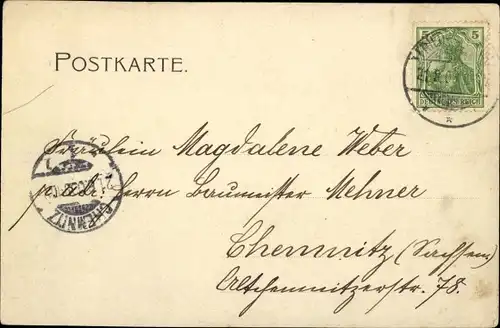 POSTKARTE.
5 5
DEUTSCHES REICH
Fräulein Magdalene Weber
p. adr. Herrn Baumeister Mehner
Chemnitz (Sachsen)
Altchemnitzerstr. 78.
CHEMNITZ